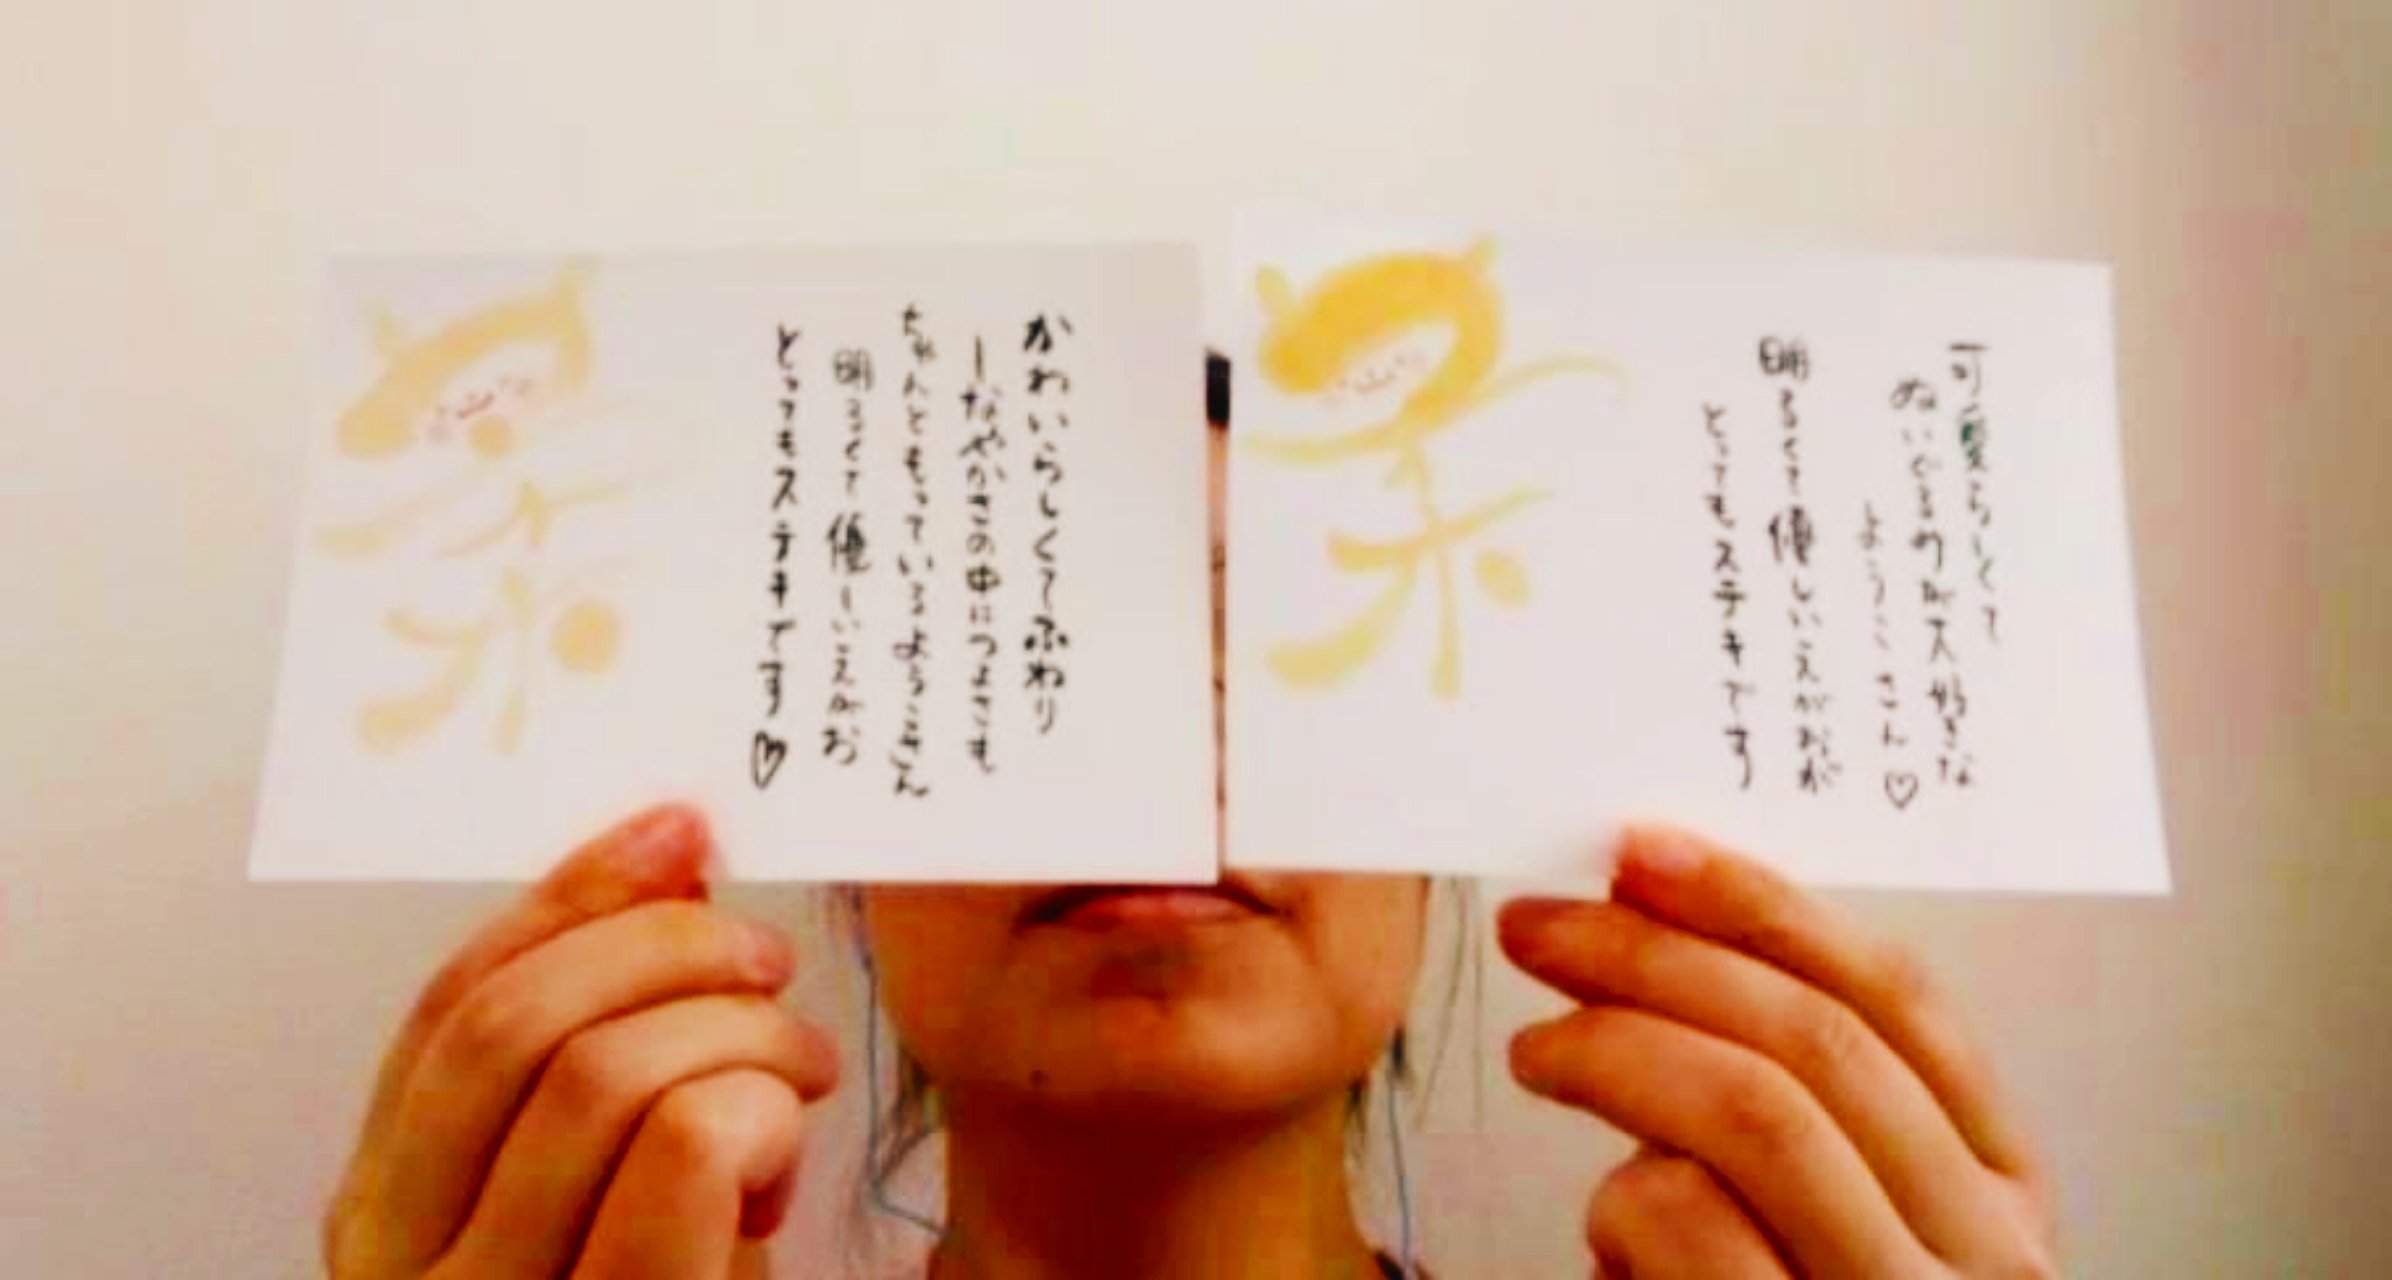 かわいらしくてふわり
しなやかさの中につよさも
ちゃんともっているようこさん
明るくて優しいえがお
とってもステキです♡
可愛らしくて
ぬいぐるみが大好きな
ようこさん♡
明るくて優しいえがおが
とってもステキです